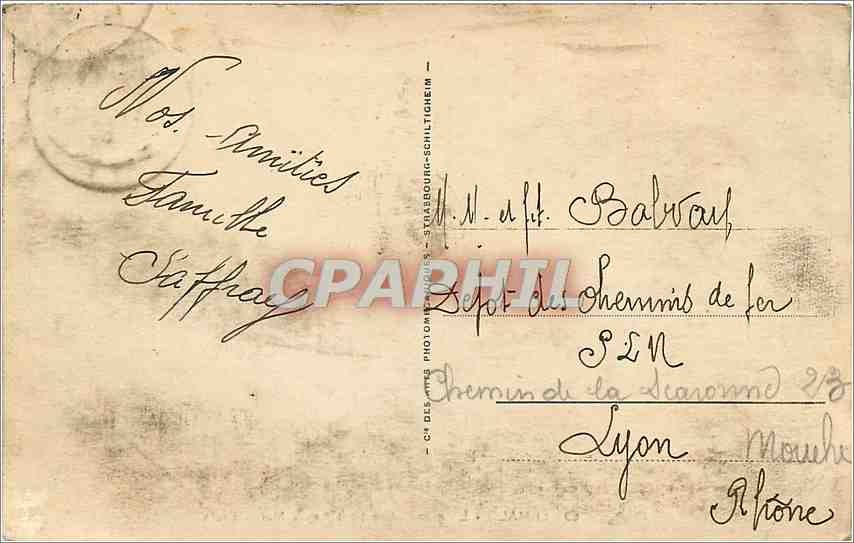 Nos. Amitiés
Famille
Saffray
CPARHIL
— Cie DES ARTS PHOTOMÉCANIQUES — STRASBOURG-SCHILTIGHEIM —
M. M. et fil.
Dépôt des chemins de fer
PLM
Chemin de la 23
Lyon - Mouche
Rhône